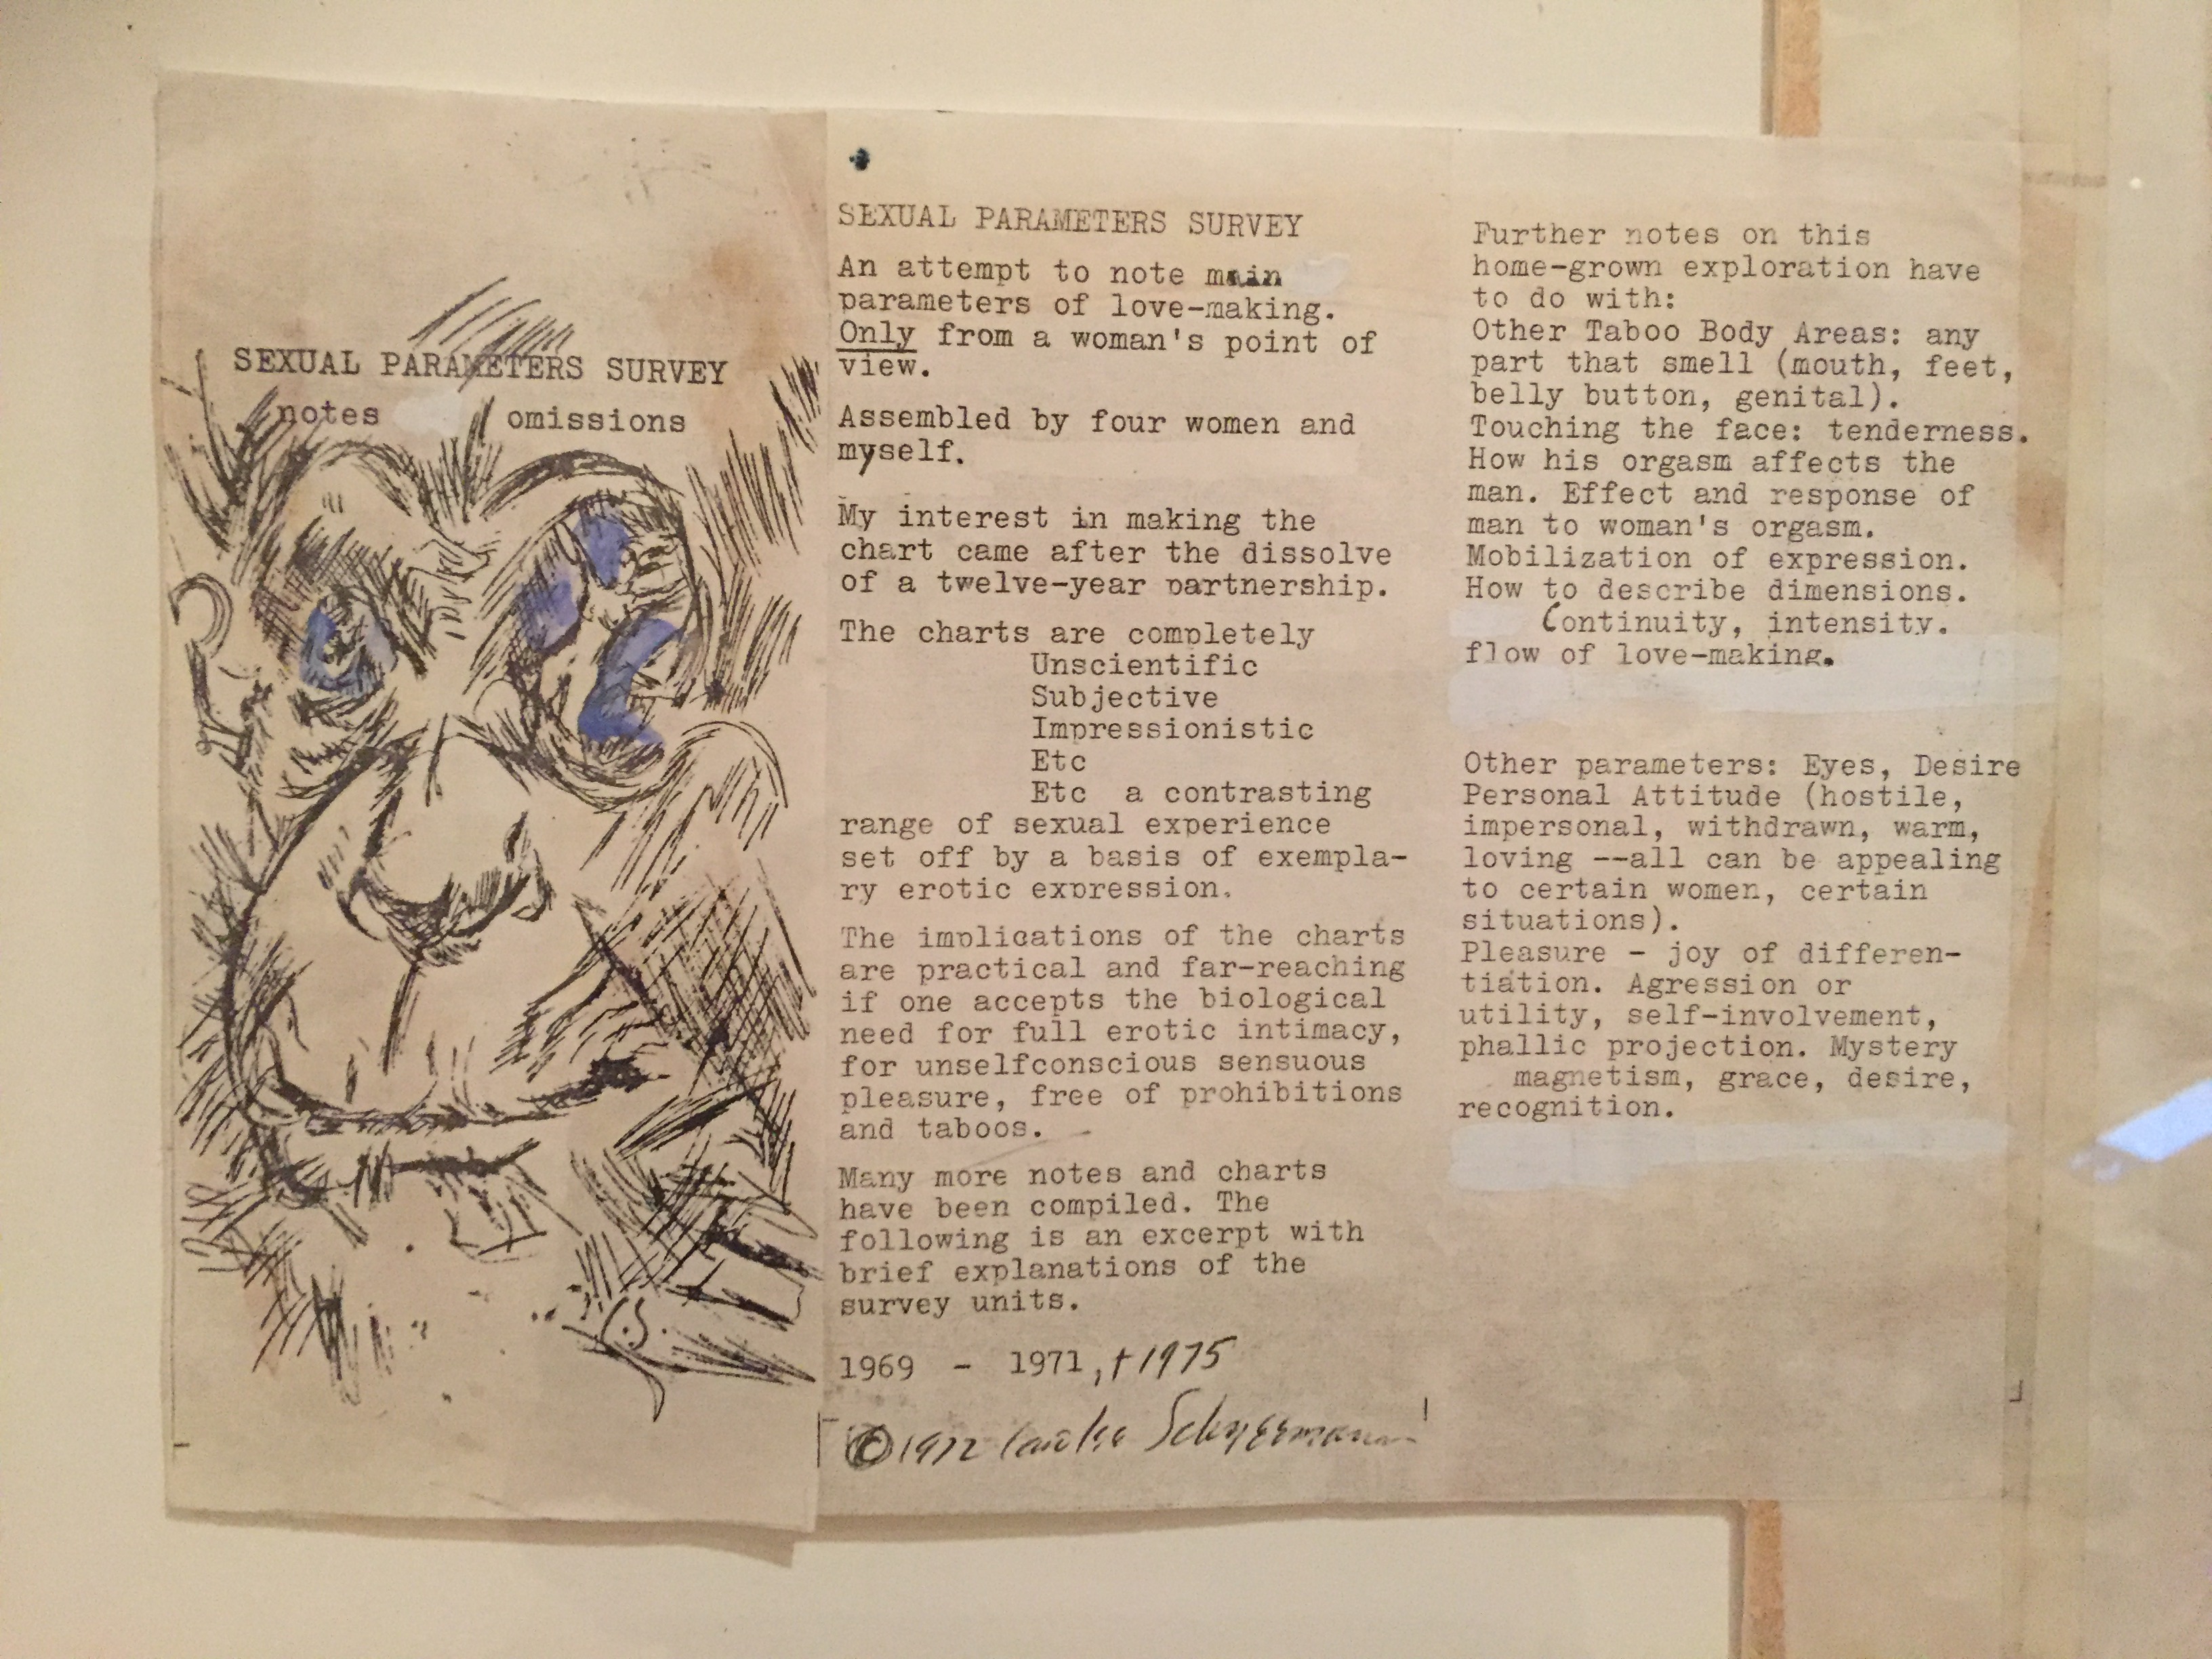 SEXUAL PARAMETERS SURVEY
notes / omissions
SEXUAL PARAMETERS SURVEY
An attempt to note main
parameters of love-making.
Only from a woman's point of
view.
Assembled by four women and
myself.
My interest in making the
chart came after the dissolve
of a twelve-year partnership.
The charts are completely
Unscientific
Subjective
Impressionistic
Etc
Etc a contrasting
range of sexual experience
set off by a basis of exempla-
ry erotic expression.
The implications of the charts
are practical and far-reaching
if one accepts the biological
need for full erotic intimacy,
for unselfconscious sensuous
pleasure, free of prohibitions
and taboos.
Many more notes and charts
have been compiled. The
following is an excerpt with
brief explanations of the
survey units.
1969 - 1971, + 1975
© 1972 Carolee Schneemann
Further notes on this
home-grown exploration have
to do with:
Other Taboo Body Areas: any
part that smell (mouth, feet,
belly button, genital).
Touching the face: tenderness.
How his orgasm affects the
man. Effect and response of
man to woman's orgasm.
Mobilization of expression.
How to describe dimensions.
Continuity, intensity.
flow of love-making.
Other parameters: Eyes, Desire
Personal Attitude (hostile,
impersonal, withdrawn, warm,
loving --all can be appealing
to certain women, certain
situations).
Pleasure - joy of differen-
tiation. Agression or
utility, self-involvement,
phallic projection. Mystery
magnetism, grace, desire,
recognition.
C.S.